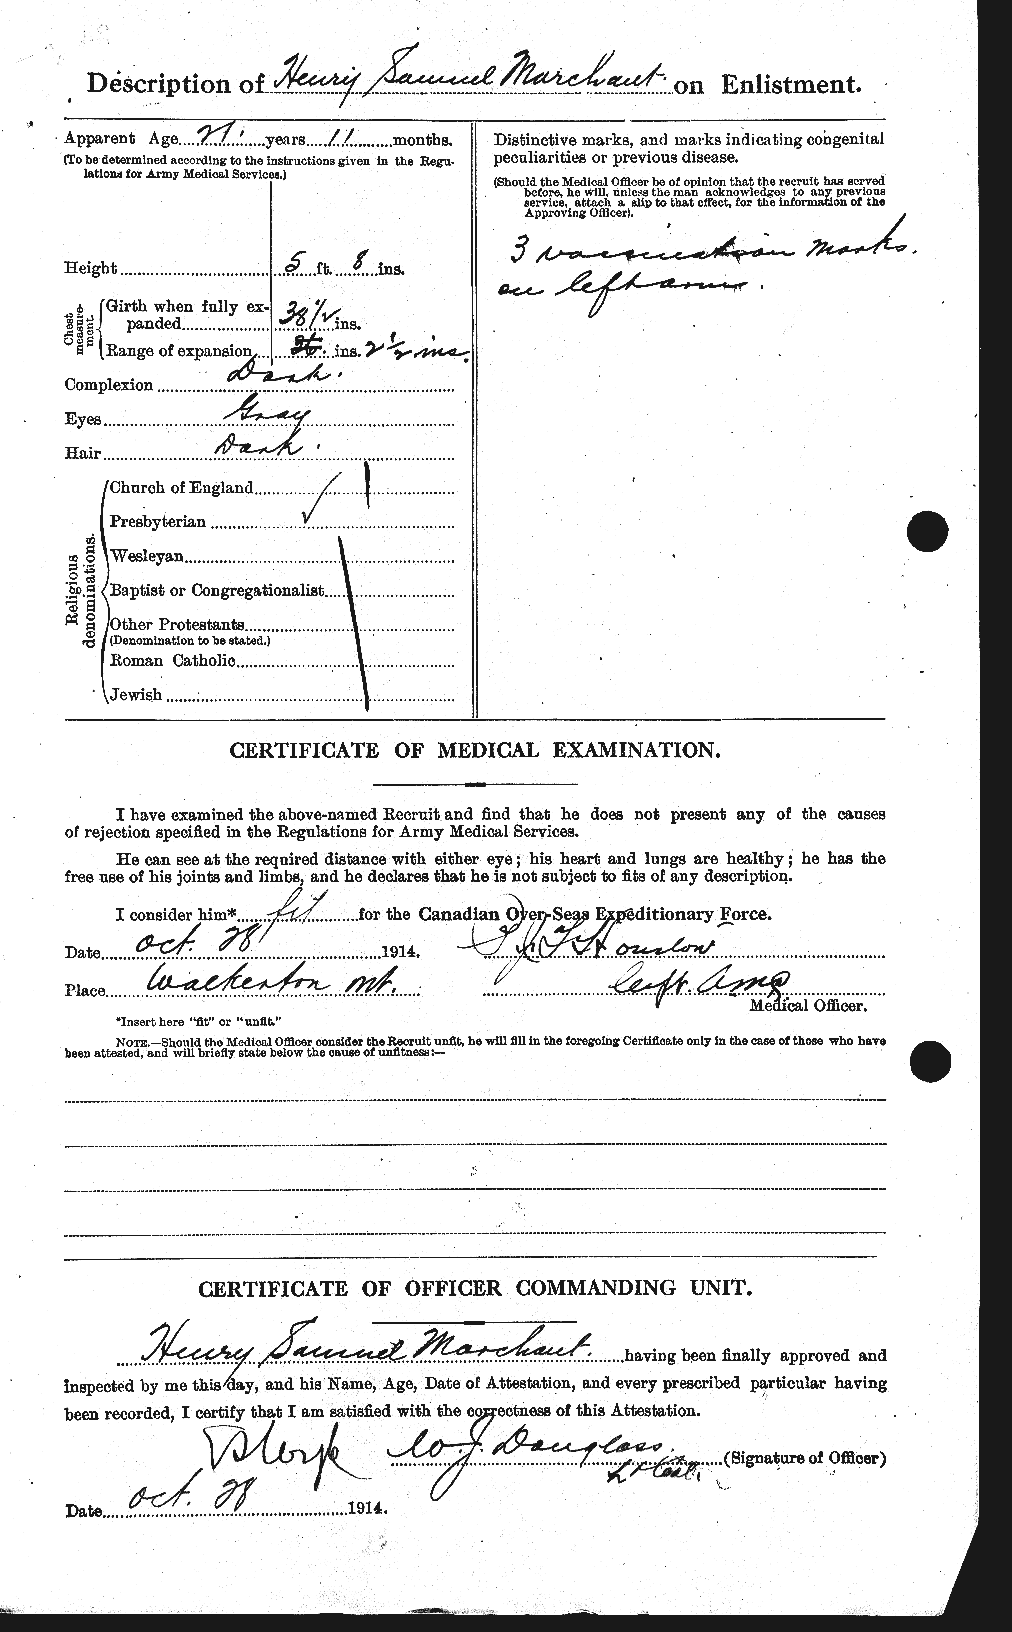 Description of Henry Samuel Marchant on Enlistment.
Apparent Age 21 years 11 months.
(To be determined according to the instructions given in the Regu-
lations for Army Medical Services.)
Height 5 ft. 8 ins.
Chest measure-ment.
Girth when fully ex-
panded 38 1/2 ins.
Range of expansion ins. 2 1/2 ins.
Complexion Dark.
Eyes Gray
Hair Dark.
Religious denominations.
Church of England
Presbyterian ✓
Wesleyan
Baptist or Congregationalist
Other Protestants
(Denomination to be stated.)
Roman Catholic
Jewish
Distinctive marks, and marks indicating congenital
peculiarities or previous disease.
(Should the Medical Officer be of opinion that the recruit has served
before, he will, unless the man acknowledges to any previous
service, attach a slip to that effect, for the information of the
Approving Officer).
3 vaccination marks.
on left arm.
CERTIFICATE OF MEDICAL EXAMINATION.
I have examined the above-named Recruit and find that he does not present any of the causes
of rejection specified in the Regulations for Army Medical Services.
He can see at the required distance with either eye; his heart and lungs are healthy; he has the
free use of his joints and limbs, and he declares that he is not subject to fits of any description.
I consider him* fit for the Canadian Over-Seas Expeditionary Force.
Date Oct. 28 1914.
Place Walkerton Ont.
Capt. AMC
Medical Officer.
*Insert here "fit" or "unfit."
NOTE.—Should the Medical Officer consider the Recruit unfit, he will fill in the foregoing Certificate only in the case of those who have
been attested, and will briefly state below the cause of unfitness:—
CERTIFICATE OF OFFICER COMMANDING UNIT.
Henry Samuel Marchant. having been finally approved and
inspected by me this day, and his Name, Age, Date of Attestation, and every prescribed particular having
been recorded, I certify that I am satisfied with the correctness of this Attestation.
W. J. Douglass. (Signature of Officer)
Date Oct. 28 1914.